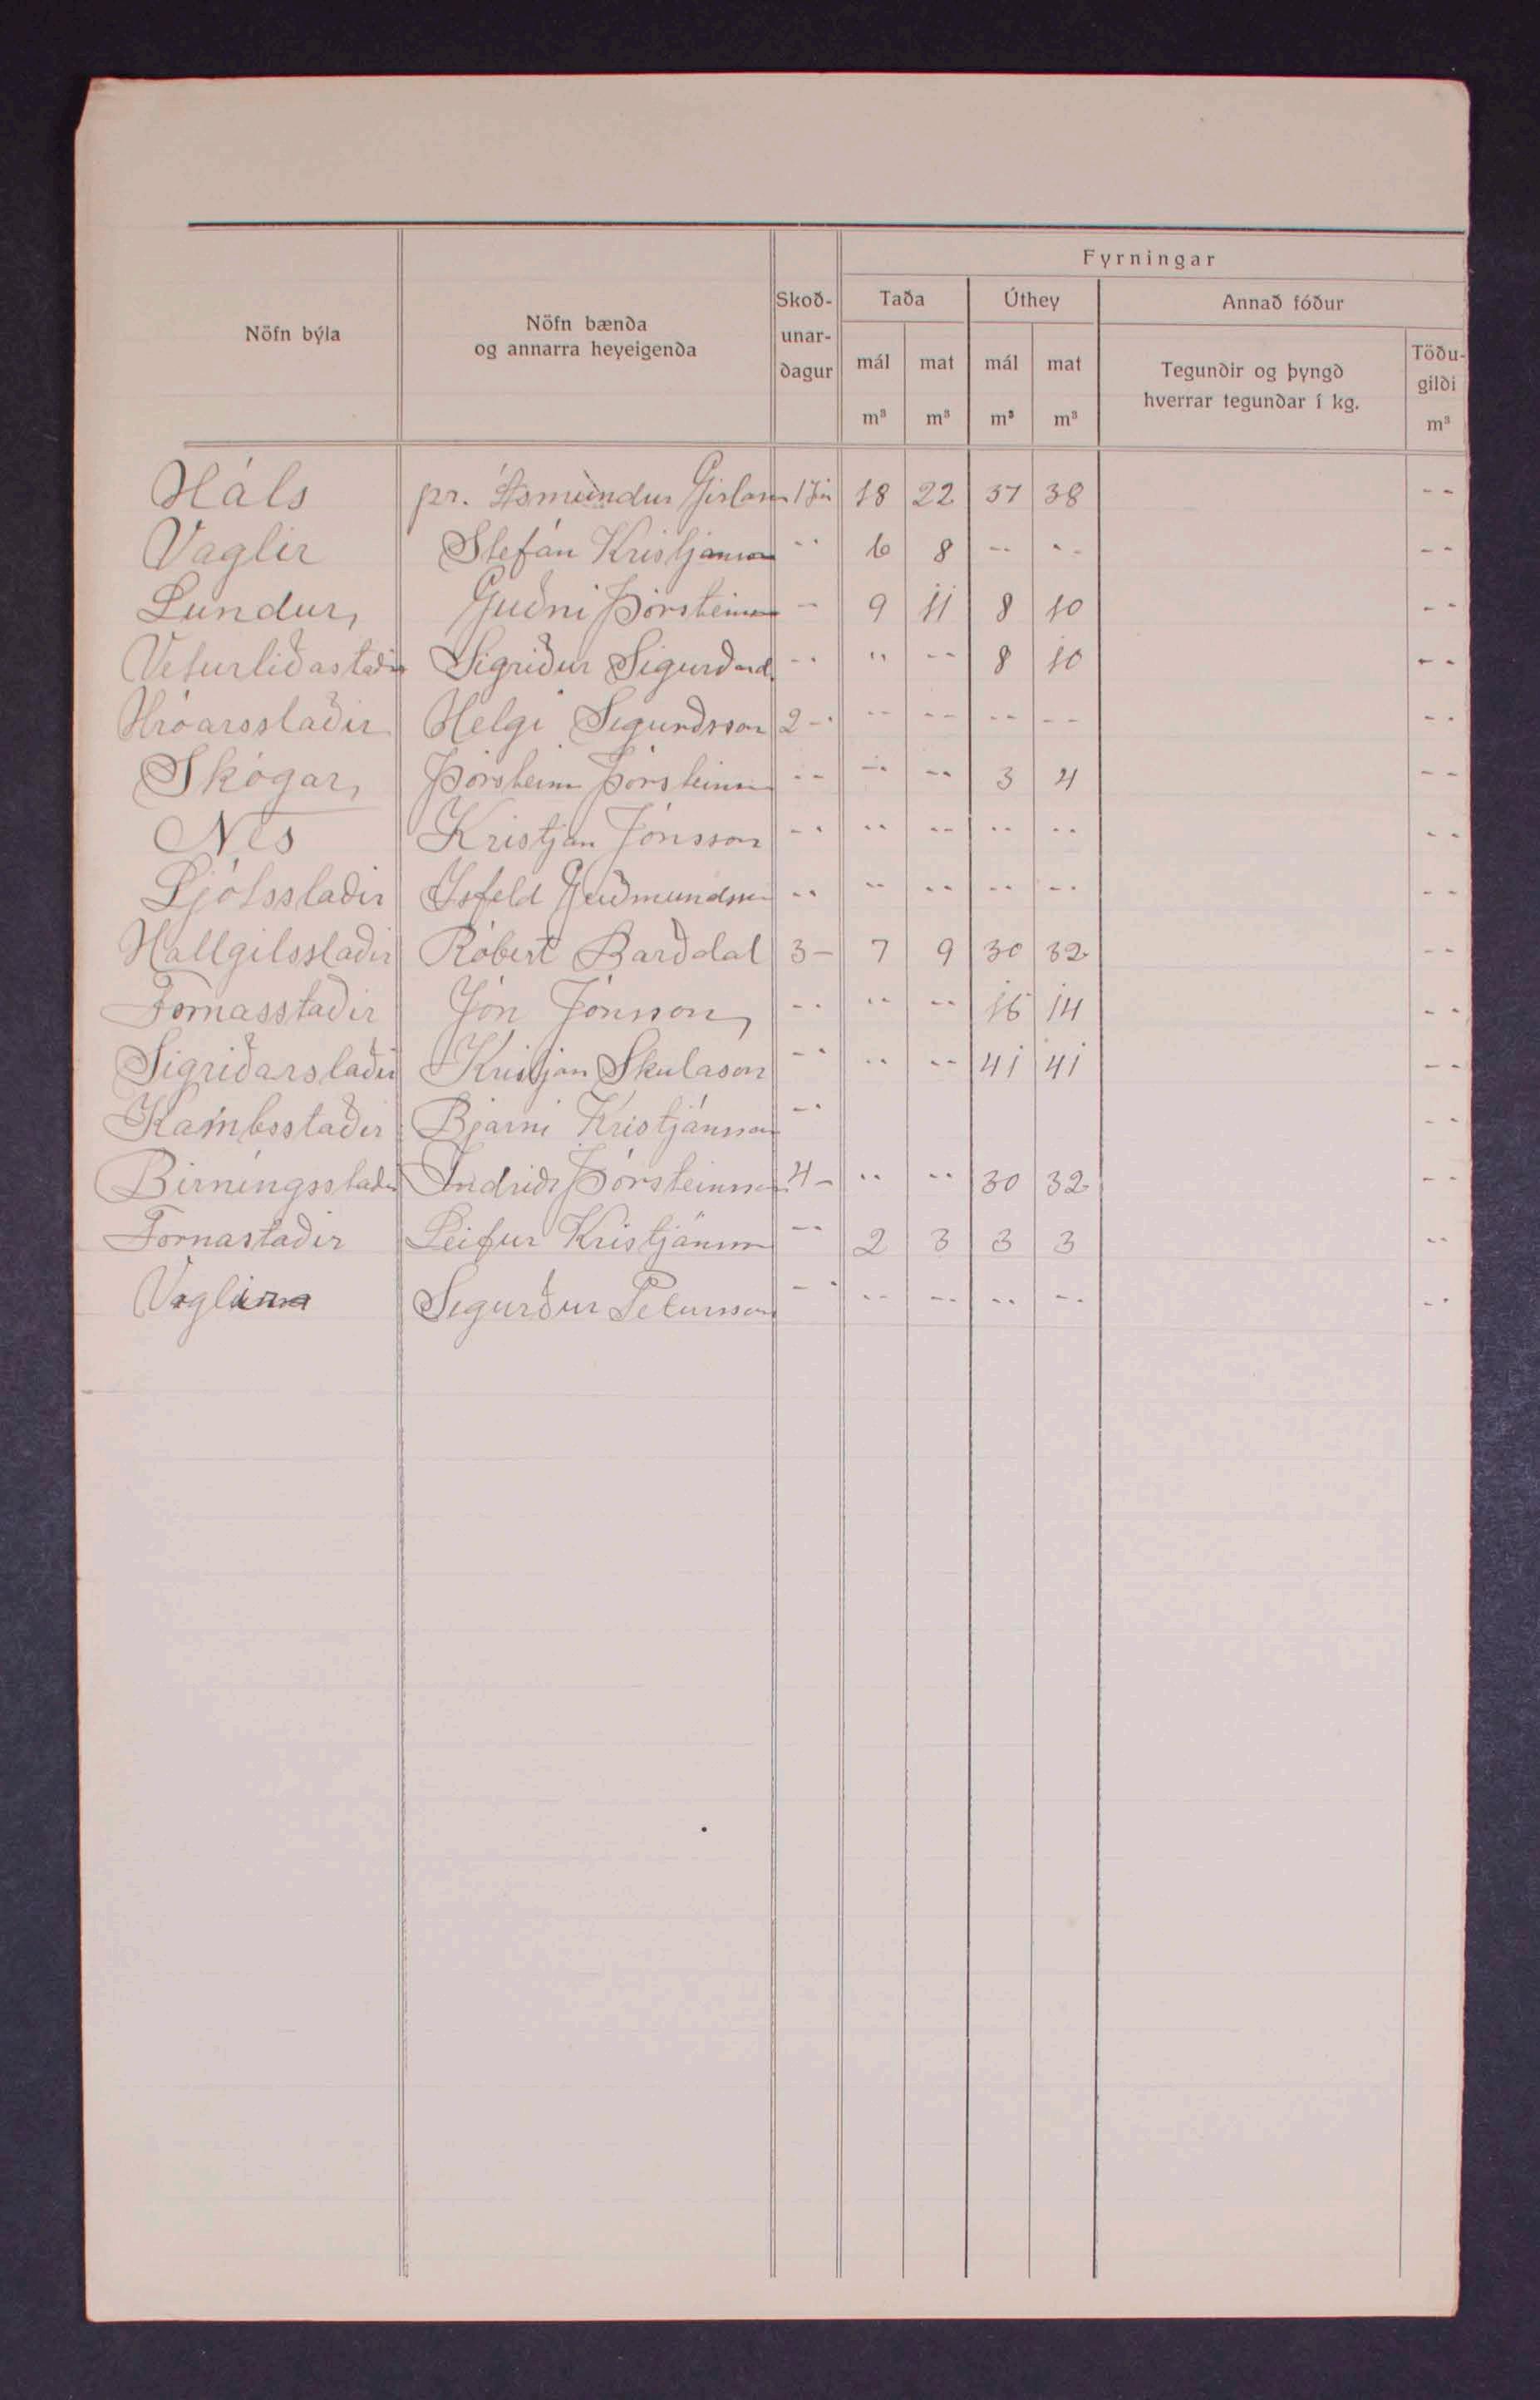 Fyrningar
Nöfn býla | Nöfn bænda og annarra heyeigenda | Skoð-unar-dagur | Taða | Úthey | Annað fóður
mál m³ | mat m³ | mál m³ | mat m³ | Tegundir og þyngd hverrar tegundar í kg. | Töðu-gildi m³
Háls | pr. Ásmundur Gislason | 1 Jú | 18 | 22 | 37 | 38 | - -
Vaglir | Stefán Kristjansson | - - | 6 | 8 | - - | - - | - -
Lundur, | Guðni Þórsteinsson | - | 9 | 11 | 8 | 10 | - -
Veturliðastaðir | Sigriður Sigurðard. | - - | " | - - | 8 | 10 | - -
Hróarsstaðir | Helgi Sigurðsson | 2 - | - - | - - | - - | - - | - -
Skógar, | Þórsteinn Þórsteinsson | - - | - - | - - | 3 | 4 | - -
Nes | Kristján Jónsson | - - | - - | - - | - - | - - | - -
Ljótsstaðir | Isfeld Guðmundsson | - - | - - | - - | - - | - - | - -
Hallgilsstaðir | Róbert Barðdal | 3 - | 7 | 9 | 30 | 32 | - -
Fornasstaðir | Jón Jónsson, | - - | - - | - - | 16 | 14 | - -
Sigriðarstaðir | Kristján Skulason | - - | - - | - - | 41 | 41 | - -
Kambsstaðir | Bjarni Kristjánsson | - - | - -
Birningsstaðir | Indriði Þórsteinsson | 4 - | - - | - - | 30 | 32 | - -
Fornastaðir | Leifur Kristjánsson | - - | 2 | 3 | 3 | 3 | - -
Sigurður Petursson | - - | - - | - - | - - | - - | - -